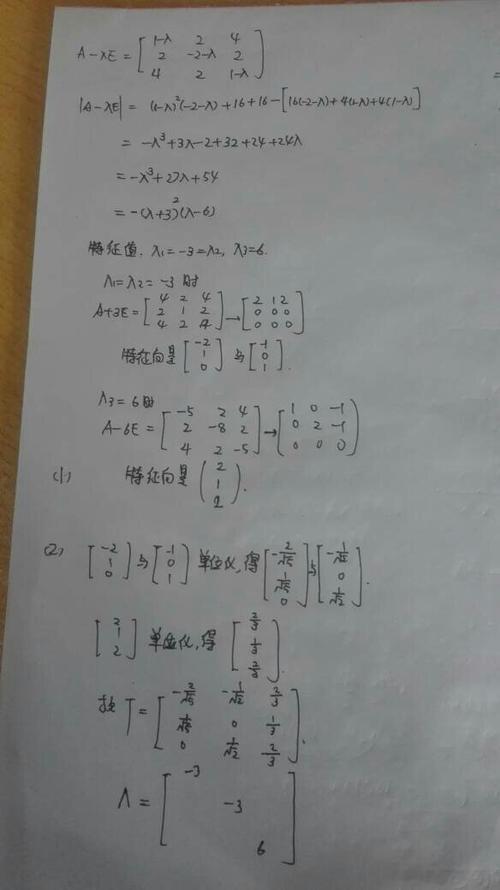 A-λE = [1-λ 2 4
2 -2-λ 2
4 2 1-λ]
|A-λE| = (1-λ)²(-2-λ)+16+16-[16(-2-λ)+4(1-λ)+4(1-λ)]
= -λ³+3λ-2+32+24+24λ
= -λ³+27λ+54
= -(λ+3)²(λ-6)
特征值, λ₁=-3=λ₂, λ₃=6.
λ₁=λ₂=-3时
A+3E = [4 2 4
2 1 2
4 2 4] → [2 1 2
0 0 0
0 0 0]
特征向是 [-2
1
0] 与 [-1
0
1].
λ₃=6时
A-6E = [-5 2 4
2 -8 2
4 2 -5] → [1 0 -1
0 2 -1
0 0 0]
(1) 特征向是 (2
1
2).
(2) [-2
1
0] 与 [-1
0
1] 单位化,得 [-2/√5
1/√5
0] 与 [-1/√2
0
1/√2].
[2
1
2] 单位化,得 [2/3
1/3
2/3].
T = [-2/√5 -1/√2 2/3
1/√5 0 1/3
0 1/√2 2/3].
Λ = [-3
-3
6]